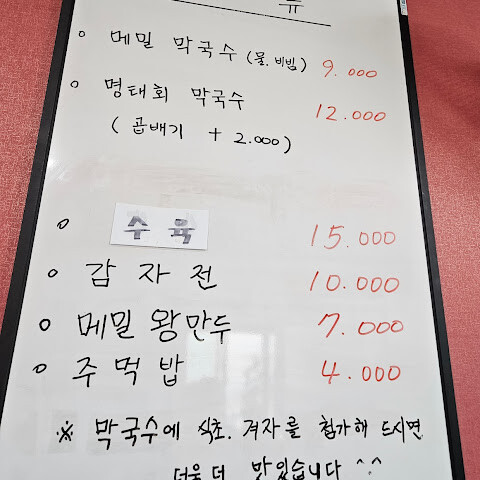 뉴
○ 메밀 막국수 (물. 비빔) 9.000
○ 명태회 막국수 12.000
( 곱배기 + 2.000 )
○ 수육 15.000
○ 감자전 10.000
○ 메밀 왕만두 7.000
○ 주먹밥 4.000
※ 막국수에 식초. 겨자를 첨가해 드시면
더욱 더 맛있습니다 ^.^